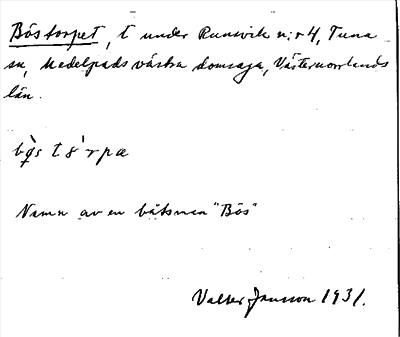 Böstorpet, t under Runvik n:r 4, Tuna
sn, Medelpads västra domsaga, Västernorrlands
län.
Namn av en båtsman "Bös"
Valter Jansson 1931.